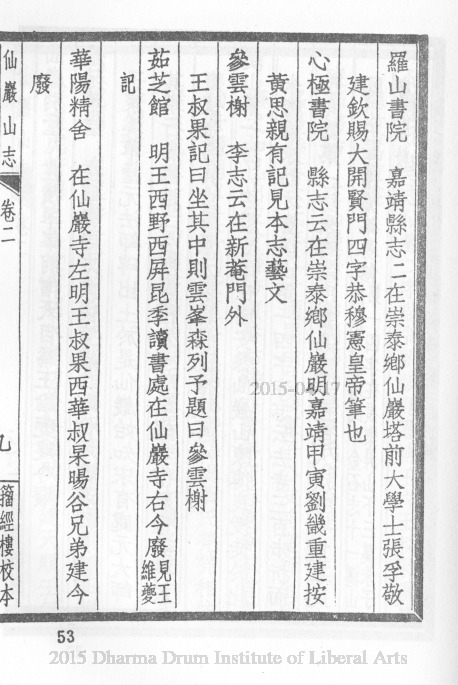 羅山書院　嘉靖縣志二在崇泰鄉仙巖塔前大學士張孚敬
建欽賜大開賢門四字恭穆憲皇帝筆也
心極書院　縣志云在崇泰鄉仙巖明嘉靖甲寅劉畿重建按
黃思親有記見本志藝文
參雲榭　李志云在新菴門外
王叔果記曰坐其中則雲峯森列予題曰參雲榭
茹芝館　明王西野西屏昆季讀書處在仙巖寺右今廢見王維夔
記
華陽精舍　在仙巖寺左明王叔果西華叔杲暘谷兄弟建今
廢
仙巖山志　卷二　九　籀經樓校本
53
2015-04-17
2015 Dharma Drum Institute of Liberal Arts